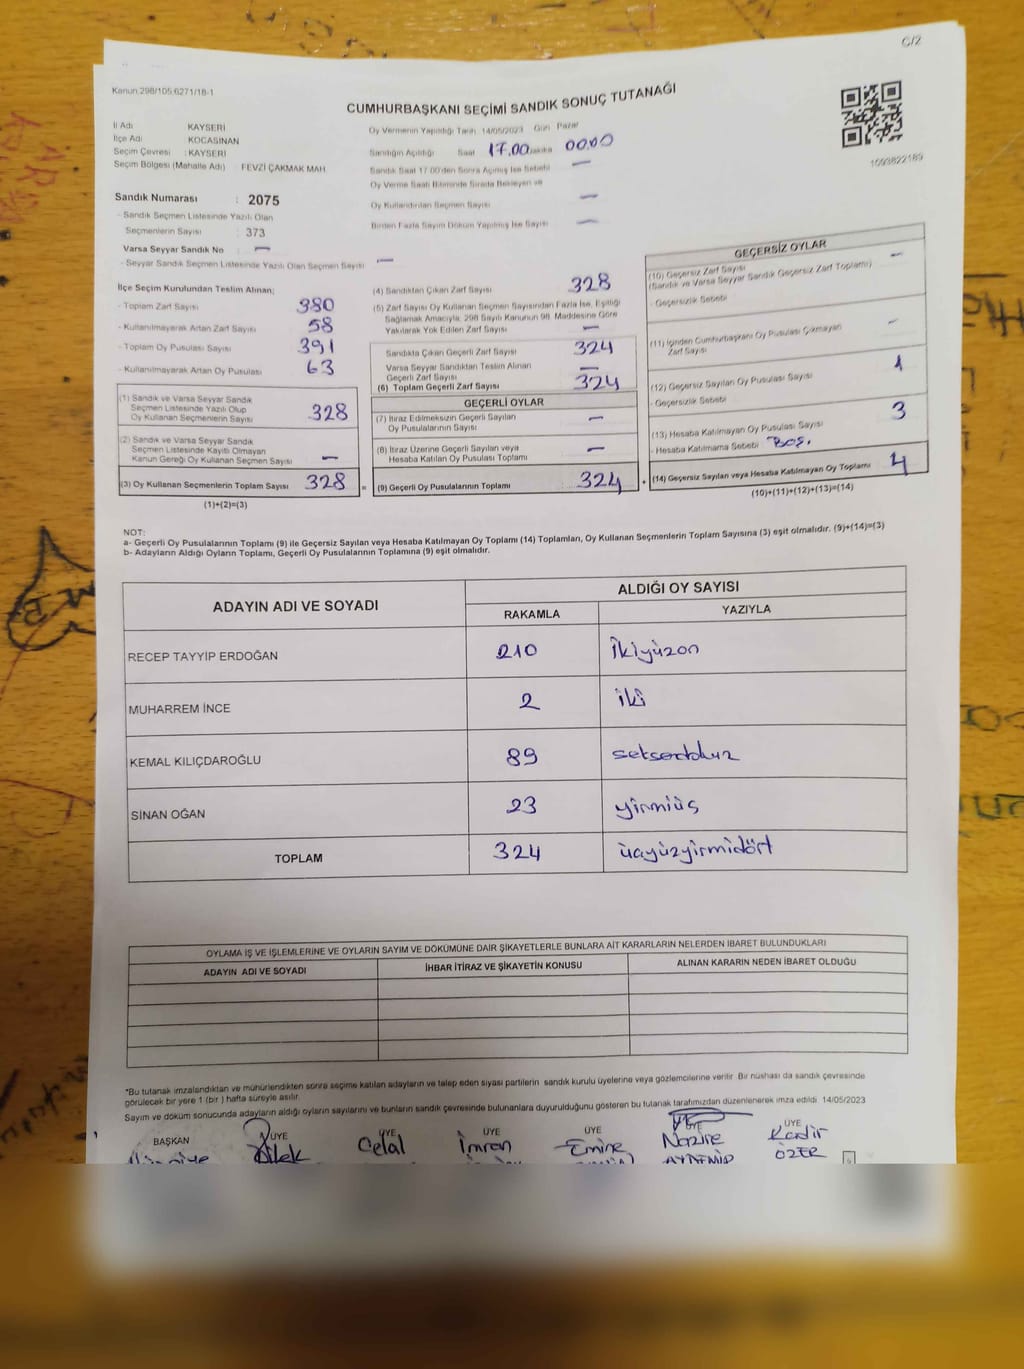 C/2
Kanun 298/105,6271/18-1
CUMHURBAŞKANI SEÇİMİ SANDIK SONUÇ TUTANAĞI
İl Adı KAYSERİ
İlçe Adı KOCASİNAN
Seçim Çevresi : KAYSERİ
Seçim Bölgesi (Mahalle Adı) FEVZİ ÇAKMAK MAH
Oy Vermenin Yapıldığı Tarih 14/05/2023 Gün Pazar
Sandığın Açıldığı Saat 17.00 dakika 00.00
Sandık Saat 17:00'den Sonra Açılmış İse Sebebi —
Oy Verme Saati Bitiminde Sırada Bekleyen ve
Oy Kullandırılan Seçmen Sayısı —
Birden Fazla Sayım Döküm Yapılmış İse Sayısı —
1093822189
Sandık Numarası : 2075
- Sandık Seçmen Listesinde Yazılı Olan
Seçmenlerin Sayısı : 373
Varsa Seyyar Sandık No : —
- Seyyar Sandık Seçmen Listesinde Yazılı Olan Seçmen Sayısı —
İlçe Seçim Kurulundan Teslim Alınan;
- Toplam Zarf Sayısı 380
- Kullanılmayarak Artan Zarf Sayısı 58
- Toplam Oy Pusulası Sayısı 391
- Kullanılmayarak Artan Oy Pusulası 63
(1) Sandık ve Varsa Seyyar Sandık
Seçmen Listesinde Yazılı Olup
Oy Kullanan Seçmenlerin Sayısı 328
(2) Sandık ve Varsa Seyyar Sandık
Seçmen Listesinde Kayıtlı Olmayan
Kanun Gereği Oy Kullanan Seçmen Sayısı —
(3) Oy Kullanan Seçmenlerin Toplam Sayısı 328
(1)+(2)=(3)
(4) Sandıktan Çıkan Zarf Sayısı 328
(5) Zarf Sayısı Oy Kullanan Seçmen Sayısından Fazla İse, Eşitliği
Sağlamak Amacıyla, 298 Sayılı Kanunun 98. Maddesine Göre
Yakılarak Yok Edilen Zarf Sayısı —
Sandıkta Çıkan Geçerli Zarf Sayısı 324
Varsa Seyyar Sandıktan Teslim Alınan
Geçerli Zarf Sayısı —
(6) Toplam Geçerli Zarf Sayısı 324
GEÇERLİ OYLAR
(7) İtiraz Edilmeksizin Geçerli Sayılan
Oy Pusulalarının Sayısı —
(8) İtiraz Üzerine Geçerli Sayılan veya
Hesaba Katılan Oy Pusulası Toplamı —
= (9) Geçerli Oy Pusulalarının Toplamı 324
GEÇERSİZ OYLAR
(10) Geçersiz Zarf Sayısı —
(Sandık ve Varsa Seyyar Sandık Geçersiz Zarf Toplamı)
- Geçersizlik Sebebi
(11) İçinden Cumhurbaşkanı Oy Pusulası Çıkmayan
Zarf Sayısı —
(12) Geçersiz Sayılan Oy Pusulası Sayısı 1
- Geçersizlik Sebebi
(13) Hesaba Katılmayan Oy Pusulası Sayısı 3
- Hesaba Katılmama Sebebi Boş.
+ (14) Geçersiz Sayılan veya Hesaba Katılmayan Oy Toplamı 4
(10)+(11)+(12)+(13)=(14)
NOT:
a- Geçerli Oy Pusulalarının Toplamı (9) ile Geçersiz Sayılan veya Hesaba Katılmayan Oy Toplamı (14) Toplamları, Oy Kullanan Seçmenlerin Toplam Sayısına (3) eşit olmalıdır. (9)+(14)=(3)
b- Adayların Aldığı Oyların Toplamı, Geçerli Oy Pusulalarının Toplamına (9) eşit olmalıdır.
ADAYIN ADI VE SOYADI ALDIĞI OY SAYISI
RAKAMLA YAZIYLA
RECEP TAYYİP ERDOĞAN 210 İkiyüzon
MUHARREM İNCE 2 iki
KEMAL KILIÇDAROĞLU 89 seksedokuz
SİNAN OĞAN 23 yirmiüç
TOPLAM 324 üçyüzyirmidört
OYLAMA İŞ VE İŞLEMLERİNE VE OYLARIN SAYIM VE DÖKÜMÜNE DAİR ŞİKAYETLERLE BUNLARA AİT KARARLARIN NELERDEN İBARET BULUNDUKLARI
ADAYIN ADI VE SOYADI İHBAR İTİRAZ VE ŞİKAYETİN KONUSU ALINAN KARARIN NEDEN İBARET OLDUĞU
*Bu tutanak imzalandıktan ve mühürlendikten sonra seçime katılan adayların ve talep eden siyasi partilerin sandık kurulu üyelerine veya gözlemcilerine verilir. Bir nüshası da sandık çevresinde
görülecek bir yere 1 (bir) hafta süreyle asılır.
Sayım ve döküm sonucunda adayların aldığı oyların sayılarını ve bunların sandık çevresinde bulunanlara duyurulduğunu gösteren bu tutanak tarafımızdan düzenlenerek imza edildi. 14/05/2023
BAŞKAN ÜYE ÜYE ÜYE ÜYE ÜYE ÜYE
Dilek Celal İmren Emine Nazire Kadir
ÖZER